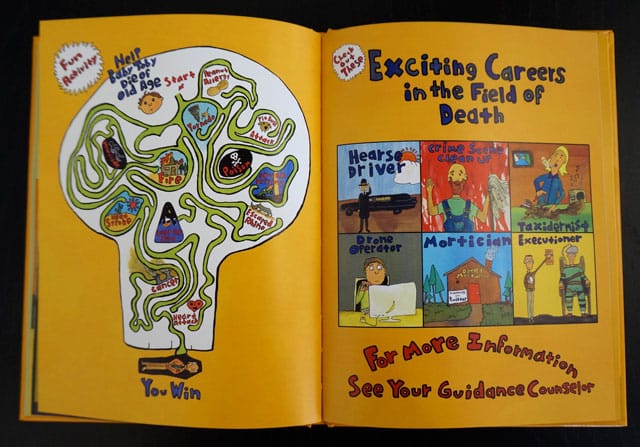 Fun
Activity
Help
Baby Toby
Die of
Old Age
Start
Peanut
Allergy
Tornado
Attack
Fire
Poison
Escaped
Cancer
Heart
Attack
You Win
Check
out
These
Exciting Careers
in the Field of
Death
Hearse
Driver
Crime Scene
Clean up
Taxidermist
Drone
Operator
Mortician
Executioner
For More Information
See Your Guidance Counselor